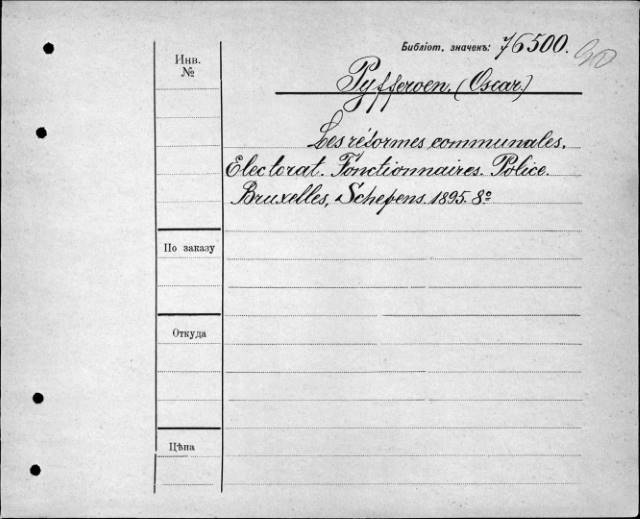 Библіот. значекъ: 76500.
Инв. №
Pyfferoen. (Oscar.)
Les réformes communales.
Electorat. Fonctionnaires. Police.
Bruxelles, Schepens. 1895. 8º
По заказу
Откуда
Цѣна